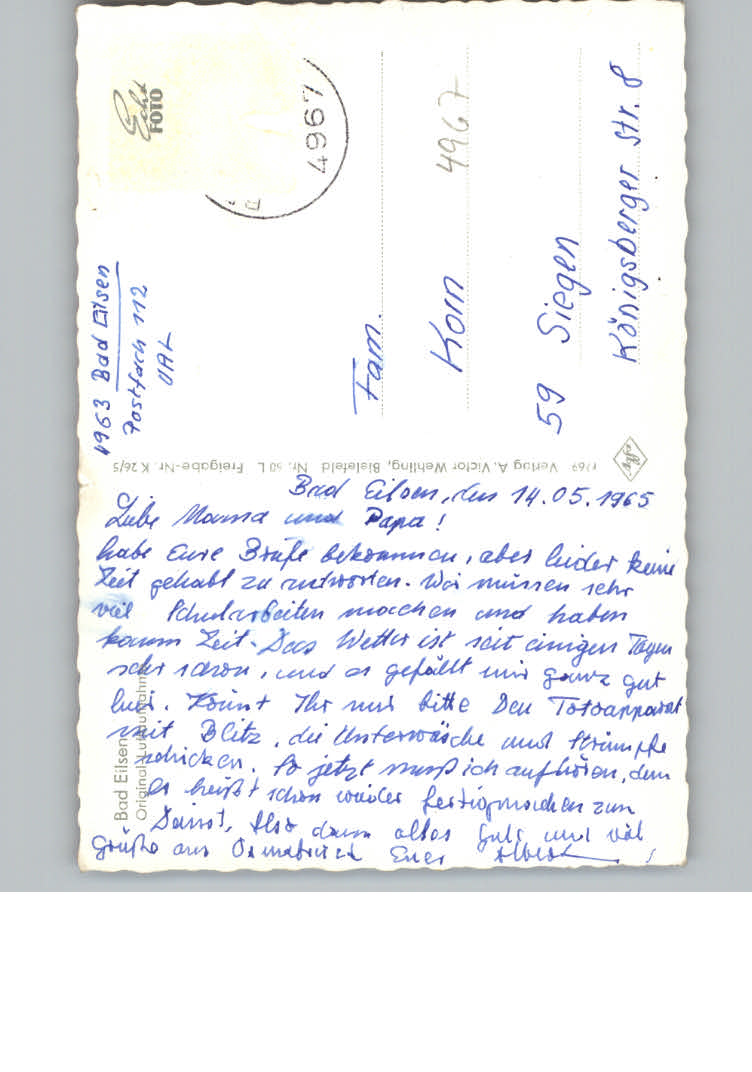 Echt
FOTO
4967
4967
4963 Bad Eilsen
Postfach 112
UAL
Fam.
Korn
59 Siegen
Königsberger Str. 8
1769 Verlag A. Victor Wehling, Bielefeld Nr. 50 L Freigabe-Nr. K 26/5
Agfa
Bad Eilsen
Original-Luftaufnahme
Bad Eilsen, den 14.05.1965
Liebe Mama und Papa!
habe Eure Briefe bekommen, aber leider keine
Zeit gehabt zu antworten. Wir müssen sehr
viel Schularbeiten machen und haben
kaum Zeit. Das Wetter ist seit einigen Tagen
sehr schön, und es gefällt mir ganz gut
hier. Könnt Ihr mir bitte den Fotoapparat
mit Blitz, die Unterwäsche und Strümpfe
schicken. So jetzt muß ich aufhören, denn
es heißt schon wieder fertigmachen zum
Dienst, Also dann alles Gute und viel
Grüße aus Osnabrück Euer Albert!